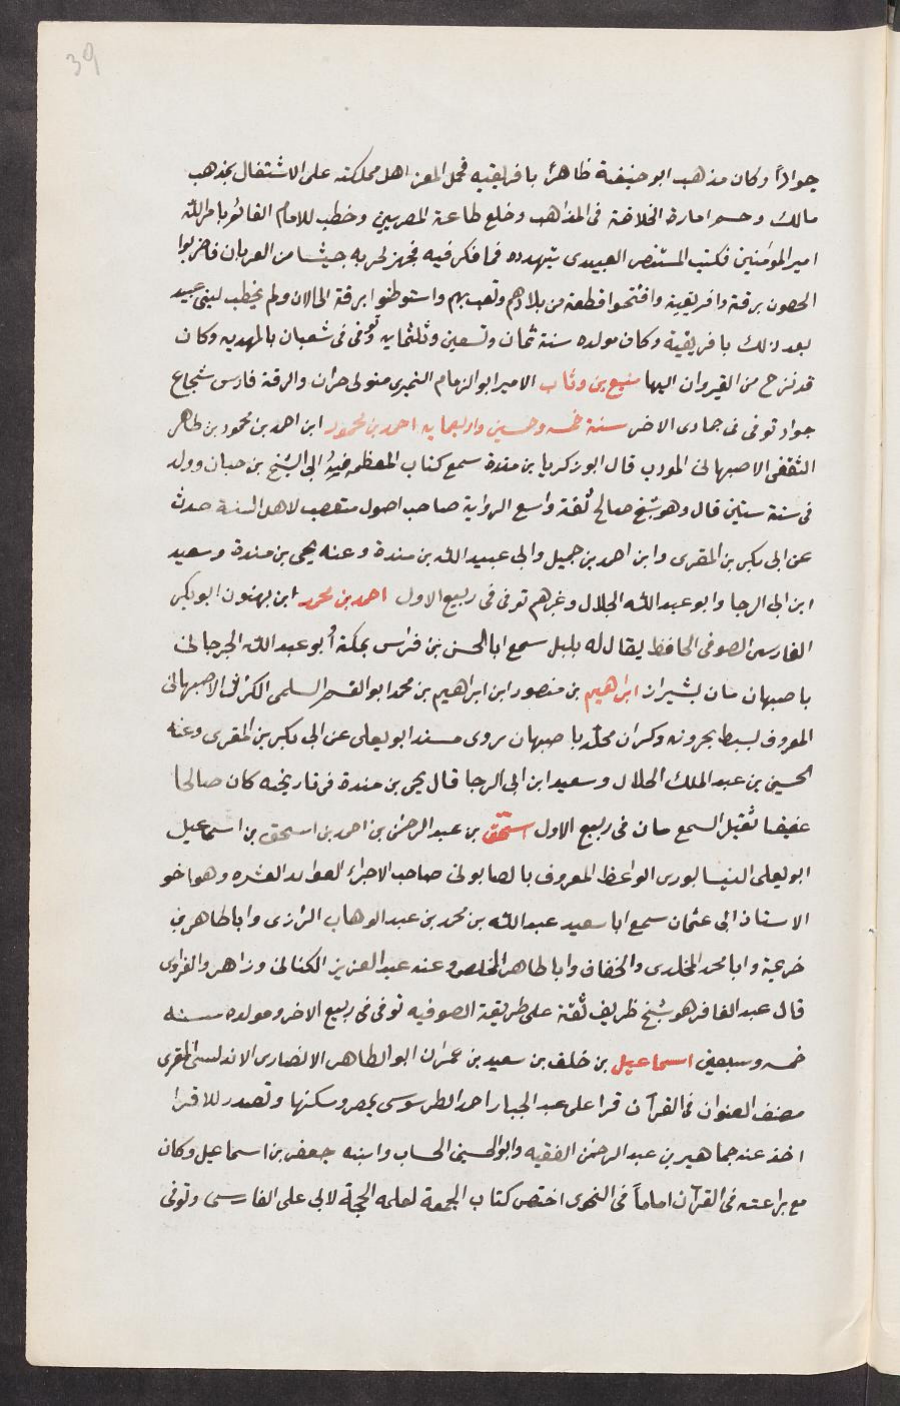 39
جواداً وكان مذهب ابو حنيفة ظاهراً بافريقيه فحمل المعز اهل مملكته على الاشتغال بمذهب
مالك وحسم امارة الخلافة فى المذاهب وخلع طاعة المصريين وخطب للامام القائم بامرالله
امير المؤمنين فكتب المستنصر العبيدى يتهدده فما فكر فيه فجهز لحربه جيشا من العربان فاخربوا
الحصون برقة وافريقية وافتتحوا قطعة من بلادهم وتعب بهم واستوطنوا برقة الى الان ولم يخطب لبنى عبيد
بعد ذلك بافريقية وكان مولده سنة ثمان وتسعين وثلثمايه وتوفى فى شعبان بالمهديه وكان
قد نزح من القيروان اليها منيع بن وثاب الامير ابو الزمام النميرى متولى حران والرقة فارس شجاع
جواد توفى فى جمادى الاخر سنة خمسه وخمسين واربعمايه احمد بن محمود ابن احمد بن محمود بن طاهر
الثقفى الاصبهانى المودب قال ابو زكريا بن مندة سمع كتاب العظمه من ابى الشيخ بن حبان وولد
فى سنة ستين قال وهو شيخ صالح ثقة واسع الرواية صاحب اصول متعصب لاهل السنة حدث
عن ابى بكر بن المقرى وابن احمد بن جميل وابى عبيد الله بن مندة وعنه يحى بن مندة وسعيد
ابن ابى الرجا وابو عبد الله الجلال وغيرهم توفى فى ربيع الاول احمد بن محمد ابن ابو بكر
الفارسى الصوفى الحافظ يقال له بلبل سمع ابا الحسن بن فراس بمكة أبو عبد الله الجرجانى
باصبهان مات بشيراز ابراهيم بن منصور ابن ابراهيم بن محمد ابو القسم السلمى الكرانى الاصبهانى
المعروف بسبط بحرويه وكران محلّة باصبهان يروى مسند ابو يعلى عن ابى بكر بن المقرى وعنه
الحسين بن عبد الملك الحلال وسعيد ابن ابى الرجا قال يحى بن مندة فى تاريخه كان صالحا
عفيفا ثقيل السمع مات فى ربيع الاول اسحق بن عبد الرحمن بن احمد بن اسحق بن اسماعيل
ابو يعلى النيسابورى الواعظ المعروف بالصابونى صاحب الاجزاء الفوايد العشره وهو اخو
الاستاذ ابى عثمان سمع ابا سعيد عبد الله بن محمد بن عبد الوهاب الرازى وابا طاهر بن
خزيمة وابا محمد المخلدى والخفاف وابا طاهر المخلص وعنه عبد العزيز الكنانى وزاهر والفراوى
قال عبد الغافر هو شيخ ظريف ثقة على طريقة الصوفيه توفى فى ربيع الاخر ومولده سنه
خمسه وسبعين اسماعيل بن خلف بن سعيد بن عمران ابو الطاهر الانصارى الاندلسى المقرى
مصنف العنوان فى القرآن قرا على عبد الجبار احمد الطرسوسى بمصر وسكنها وتصدر للاقرا
اخذ عنه جماهير بن عبد الرحمن الفقيه وابو الحسين الخشاب وابنه جعفر بن اسماعيل وكان
مع براعته فى القرآن اماماً فى النحوى اختصر كتاب الجمعة لعله الحجة لابى على الفارسى وتوفى